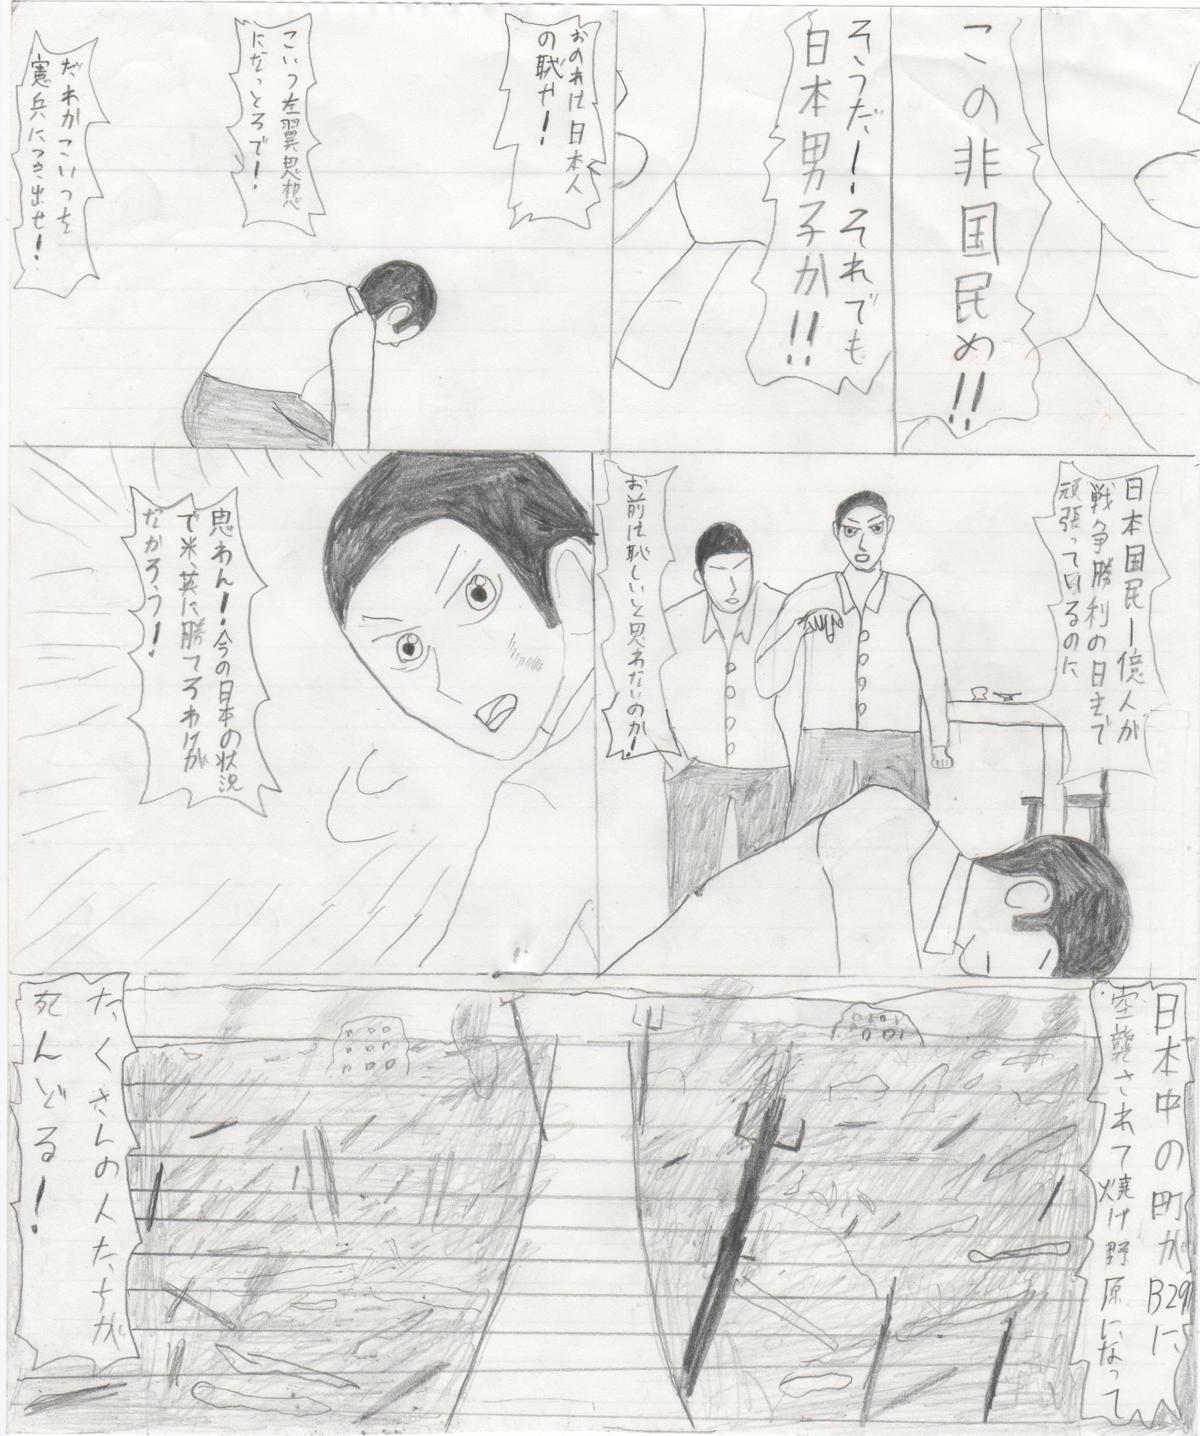 この非国民め!!
そうだ!それでも
日本男子か!!
おのれは日本人
の恥や!
こいつ左翼思想
になっとるで!
だれかこいつを
憲兵につき出せ!
日本国民一億人が
戦争勝利の日まで
頑張って居るのに
お前は恥しいと思わないのか!
思わん!今の日本の状況
で米、英に勝てるわけが
なかろう!
日本中の町がB29に
空襲されて焼け野原になって
たくさんの人たちが
死んどる!